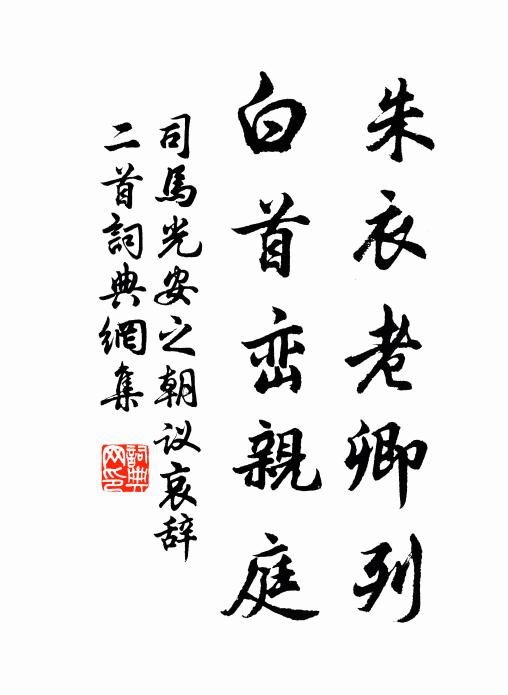 朱衣老卿列
白首峦親庭
司馬光安之朝议哀辞
二首詞典網集
詞典網印